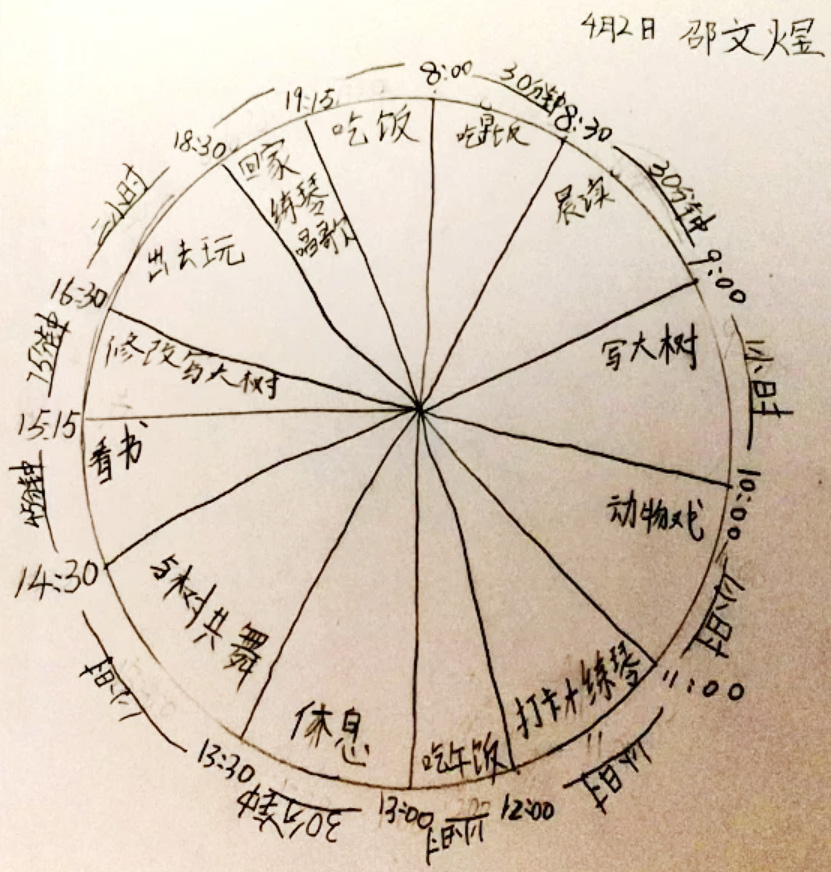 4月2日 邵文煜
8:00
30分钟
8:30
30分钟
9:00
1小时
10:00
1小时
11:00
1小时
12:00
1小时
13:00
30分钟
13:30
1小时
14:30
45分钟
15:15
75分钟
16:30
二小时
18:30
19:15
吃早饭
晨读
写大树
动物戏
打卡+练琴
吃午饭
休息
与树共舞
看书
修改写大树
出去玩
回家
练琴
唱歌
吃饭